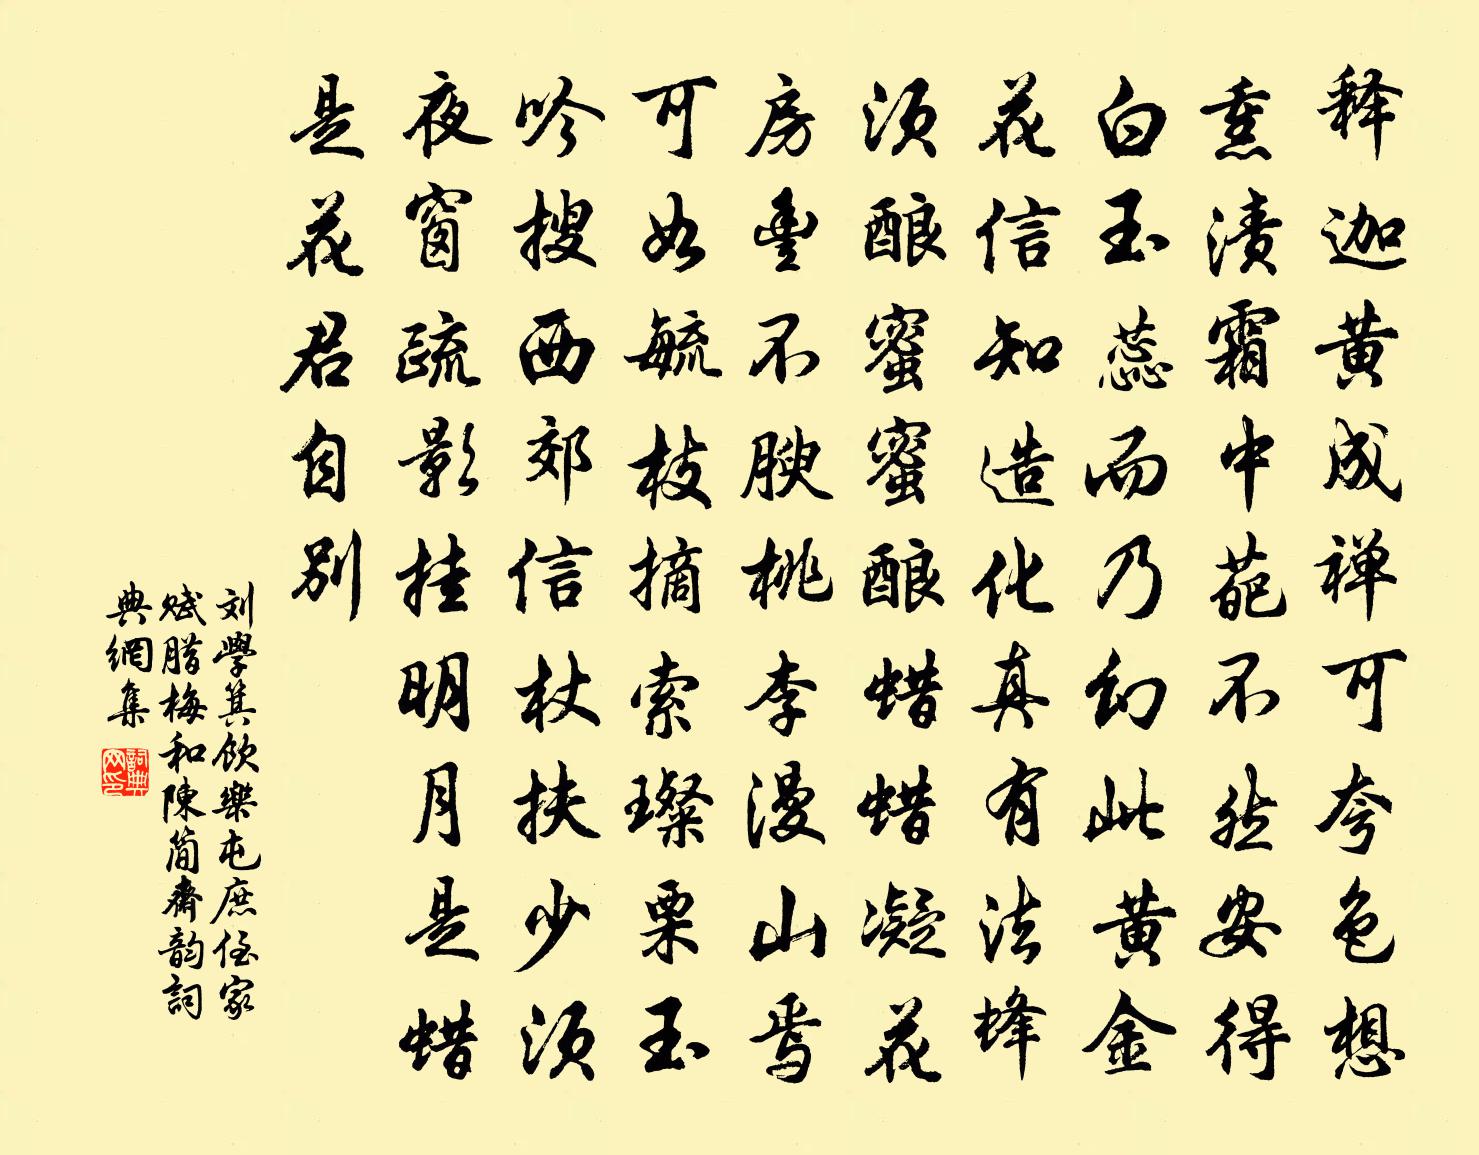 释迦黄成禅可夸色想
熏渍霜中葩不然安得
白玉蕊而乃幻此黄金
花信知造化真有法蜂
须酿蜜蜜酿蜡蜡凝花
房豊不腴桃李漫山焉
可如毓枝摘索璨栗玉
吟搜西郊信杖扶少须
夜窗疏影挂明月是蜡
是花君自别
刘學箕飲樂屯庶侄家
赋腊梅和陳簡齋韵詞
典網集
詞典網印